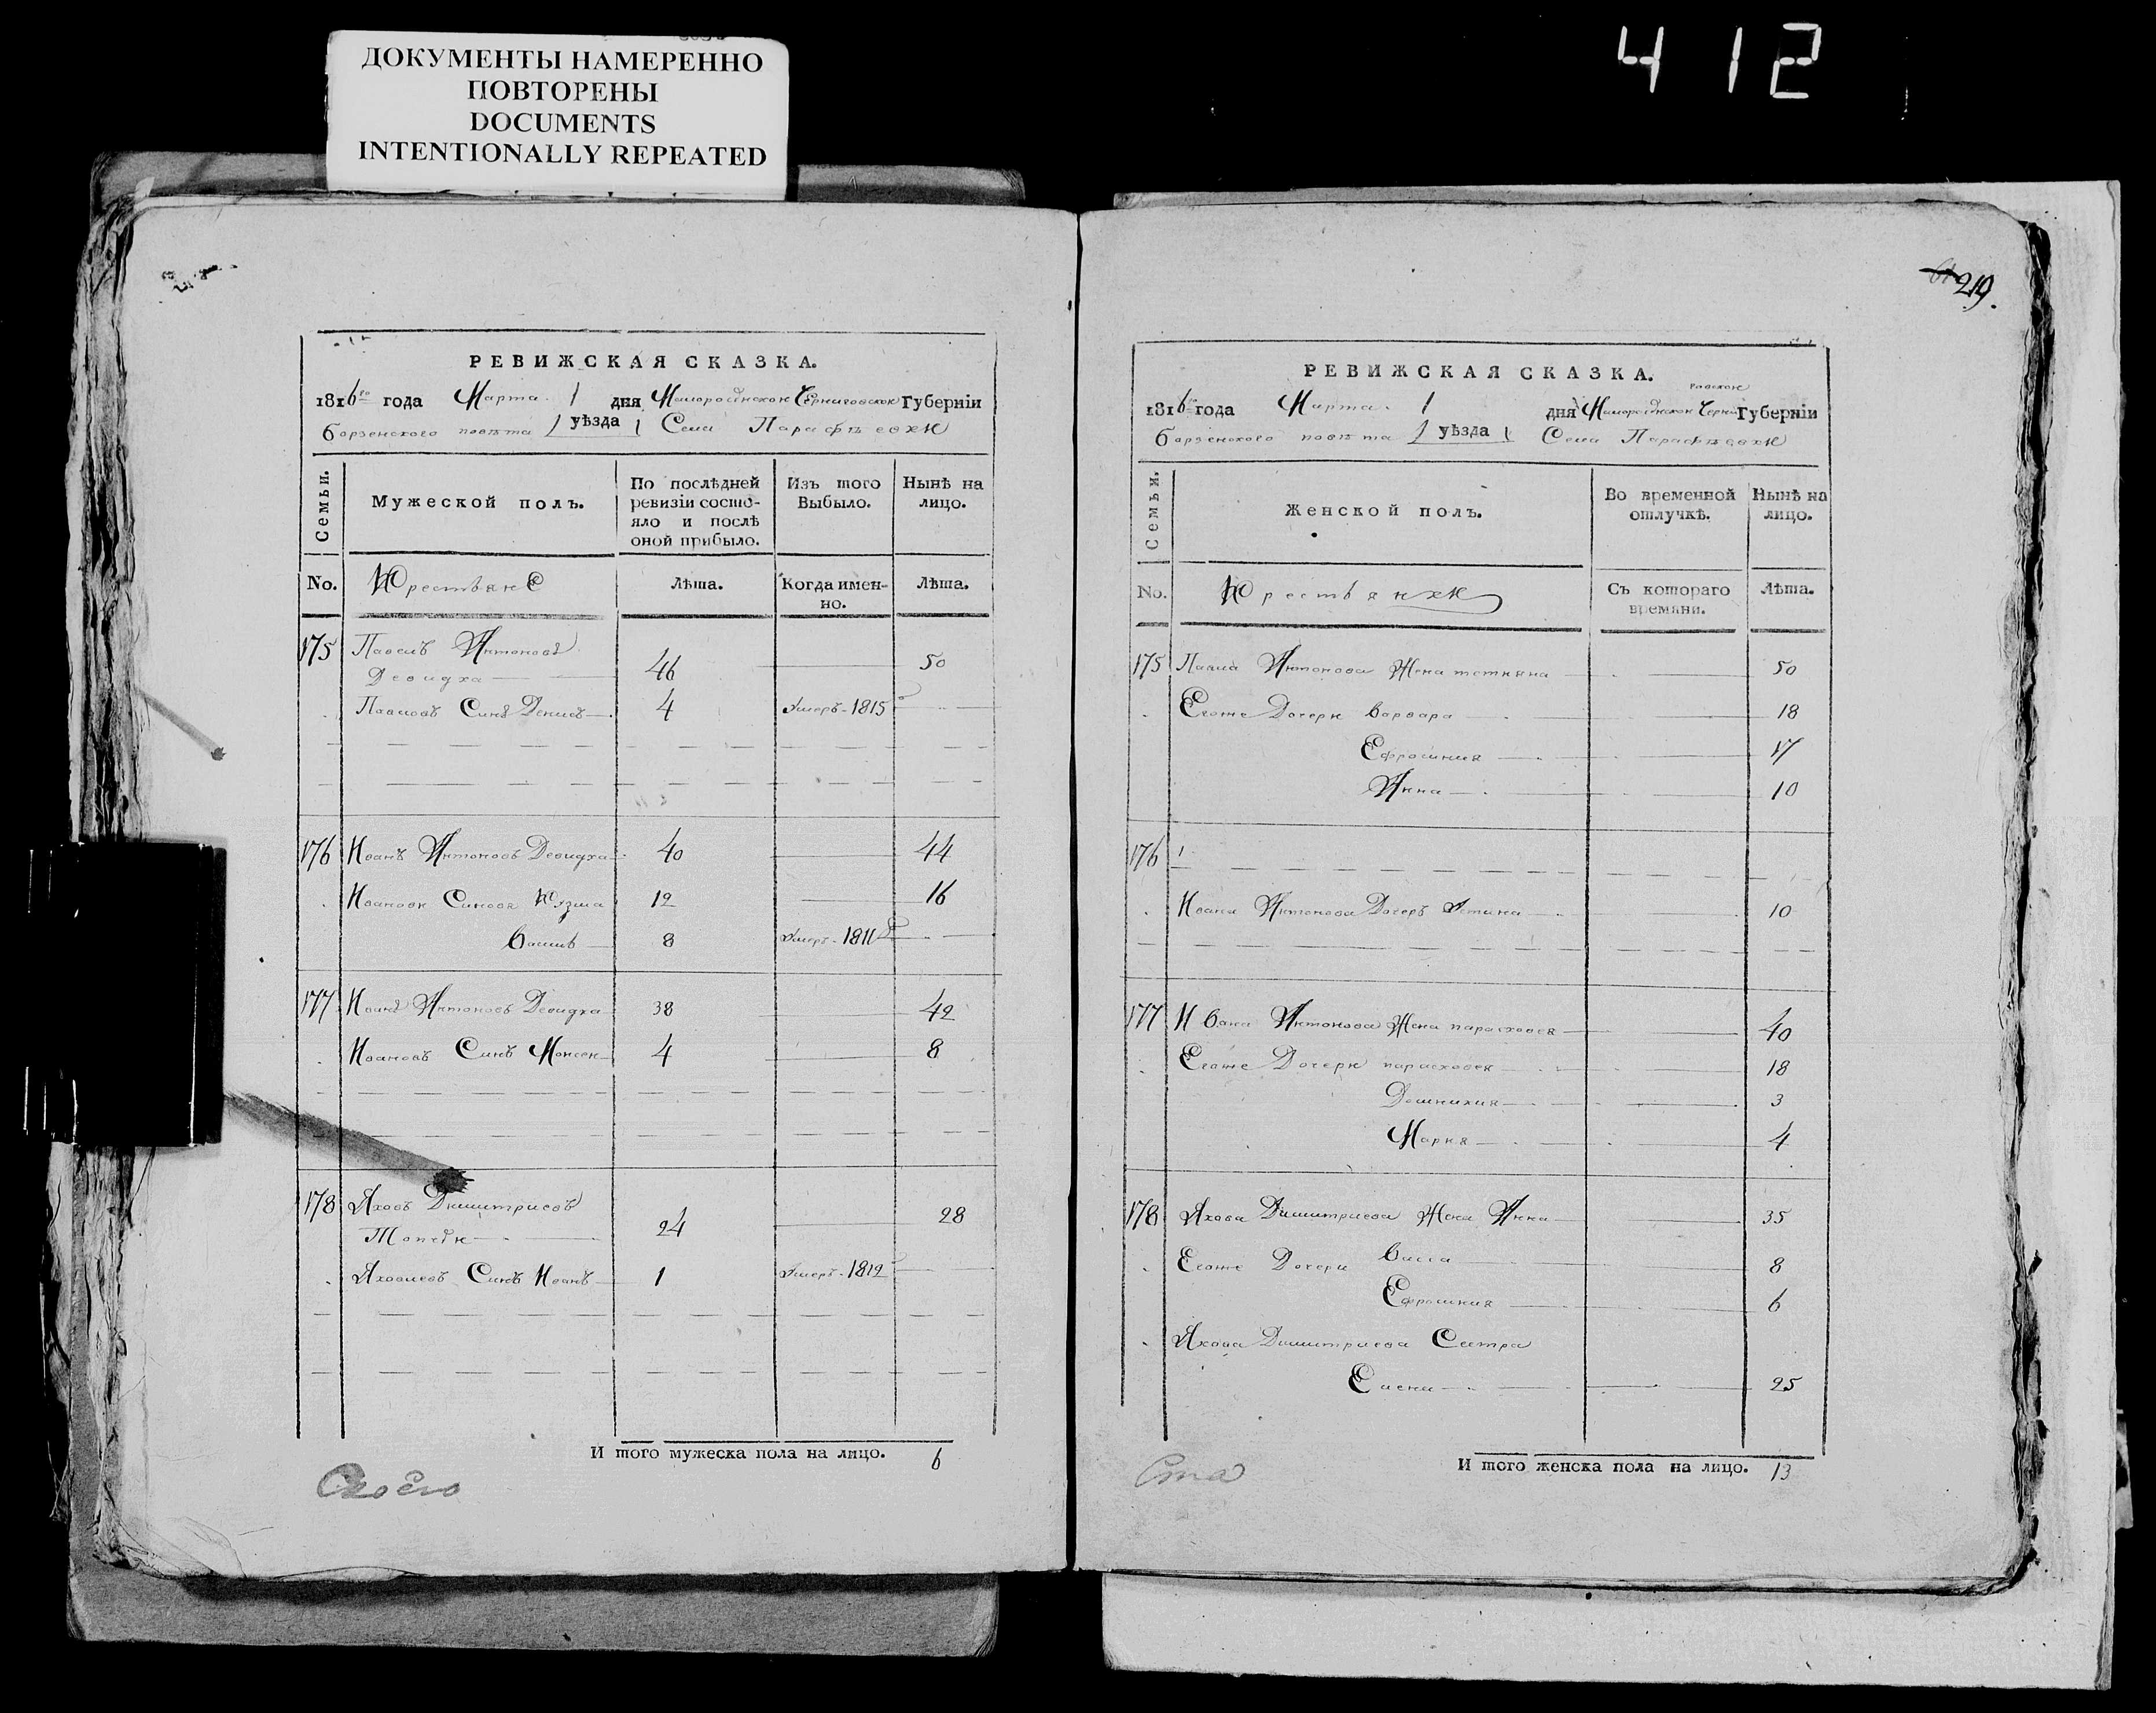 ДОКУМЕНТЫ НАМЕРЕННО
ПОВТОРЕНЫ
DOCUMENTS
INTENTIONALLY REPEATED
412
РЕВИЖСКАЯ СКАЗКА.
1816го года Марта 1 дня Малоросійской Черниговской Губерніи
борзенского повѣта уѣзда Села Парафѣевки
Семьи.
Мужеской полъ.
По послѣдней ревизіи состояло и послѣ оной прибыло.
Изъ того Выбыло.
Нынѣ на лицо.
No. Крестьяне Лѣта. Когда именно. Лѣта.
175 Павелъ Антоновъ
Девидка 46 50
Павловъ Синъ Денисъ 4 Умеръ 1815
176 Иванъ Антоновъ Девидка 40 44
Ивановы Синовя Кузма 12 16
8 Умеръ 1811
177 Иванъ Антоновъ Девидка 38 42
Ивановъ Синъ Моисей 4 8
178 Яковъ Димитриевъ
24 28
Яковлевъ Синъ Иванъ 1 Умеръ 1812
И того мужеска пола на лицо. 6
219.
РЕВИЖСКАЯ СКАЗКА.
1816 года Марта 1 дня Малоросійской Черниговской Губерніи
борзенского повѣта уѣзда Села Парафѣевки
Семьи.
Женской полъ.
Во временной отлучкѣ.
Нынѣ на лицо.
No. Крестьянки Съ котораго времяни. Лѣта.
175 Павла Антонова Жена тетияна 50
Егоже Дочери Варвара 18
Ефросиния 17
Анна 10
176
Ивана Антонова Дочеръ Устина 10
177 Ивана Антонова Жена парасковея 40
Егоже Дочери парасковея 18
Домникия 3
Мария 4
178 Якова Димитриева Жена Анна 35
Егоже Дочери Васса 8
Ефросиния 6
Якова Димитриева Сестра
25
И того женска пола на лицо. 13